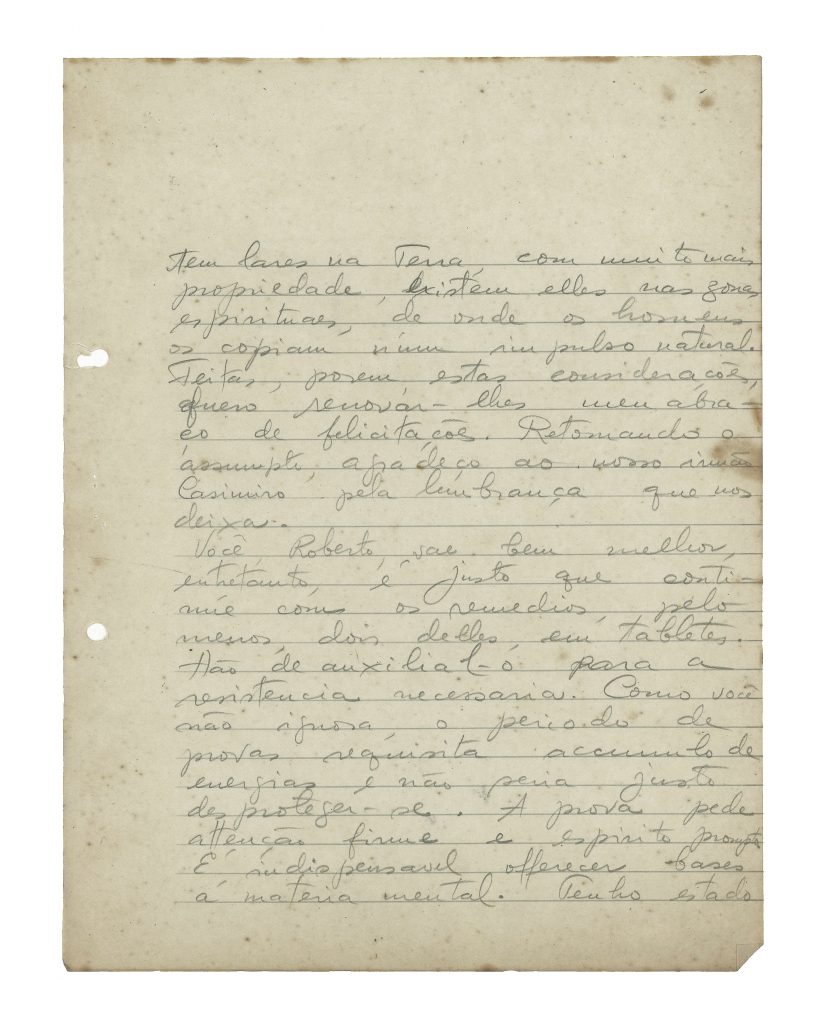 tem lares na Terra, com muito mais
propriedade, existem elles nas zonas
espirituaes, de onde os homens
os copiam, num impulso natural.
Feitas, porem, estas considerações,
quero renovar-lhes meu abra-
ço de felicitações. Retomando o
assumpto, agradeço ao nosso irmão
Casimiro pela lembrança que nos
deixa.
Você, Roberto, vae bem melhor,
entretanto, é justo que conti-
núe com os remedios, pelo
menos, dois delles, em tabletes.
Hão de auxilial-o para a
resistencia necessaria. Como você
não ignora, o periodo de
provas requisita accumulo de
energias e não seria justo
desproteger-se. A prova pede
attenção firme e espirito prompto.
É indispensavel offerecer bases
á materia mental. Tenho estado